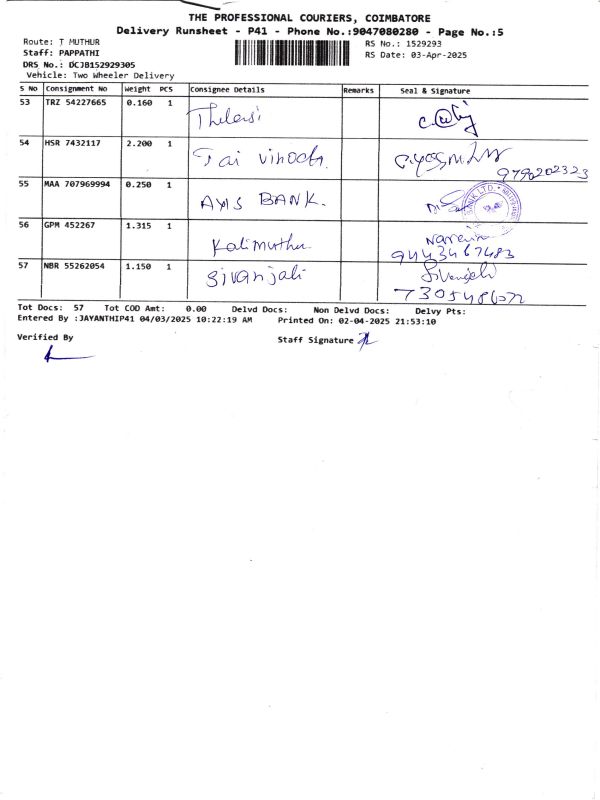 THE PROFESSIONAL COURIERS, COIMBATORE
Delivery Runsheet - P41 - Phone No.:9047080280 - Page No.:5
Route: T MUTHUR
RS No.: 1529293
Staff: PAPPATHI
RS Date: 03-Apr-2025
DRS No.: DCJB152929305
Vehicle: Two Wheeler Delivery
S No Consignment No Weight PCS Consignee Details Remarks Seal & Signature
53 TRZ 54227665 0.160 1
54 HSR 7432117 2.200 1 Jai vinoth.
9790202323
55 MAA 707969994 0.250 1 AXIS BANK.
56 GPM 452267 1.315 1 Kalimuthu
9443467483
57 NBR 55262054 1.150 1 Sivanjali Sivanjali
Tot Docs: 57 Tot COD Amt: 0.00 Delvd Docs: Non Delvd Docs: Delvy Pts:
Entered By :JAYANTHIP41 04/03/2025 10:22:19 AM Printed On: 02-04-2025 21:53:10
Verified By Staff Signature